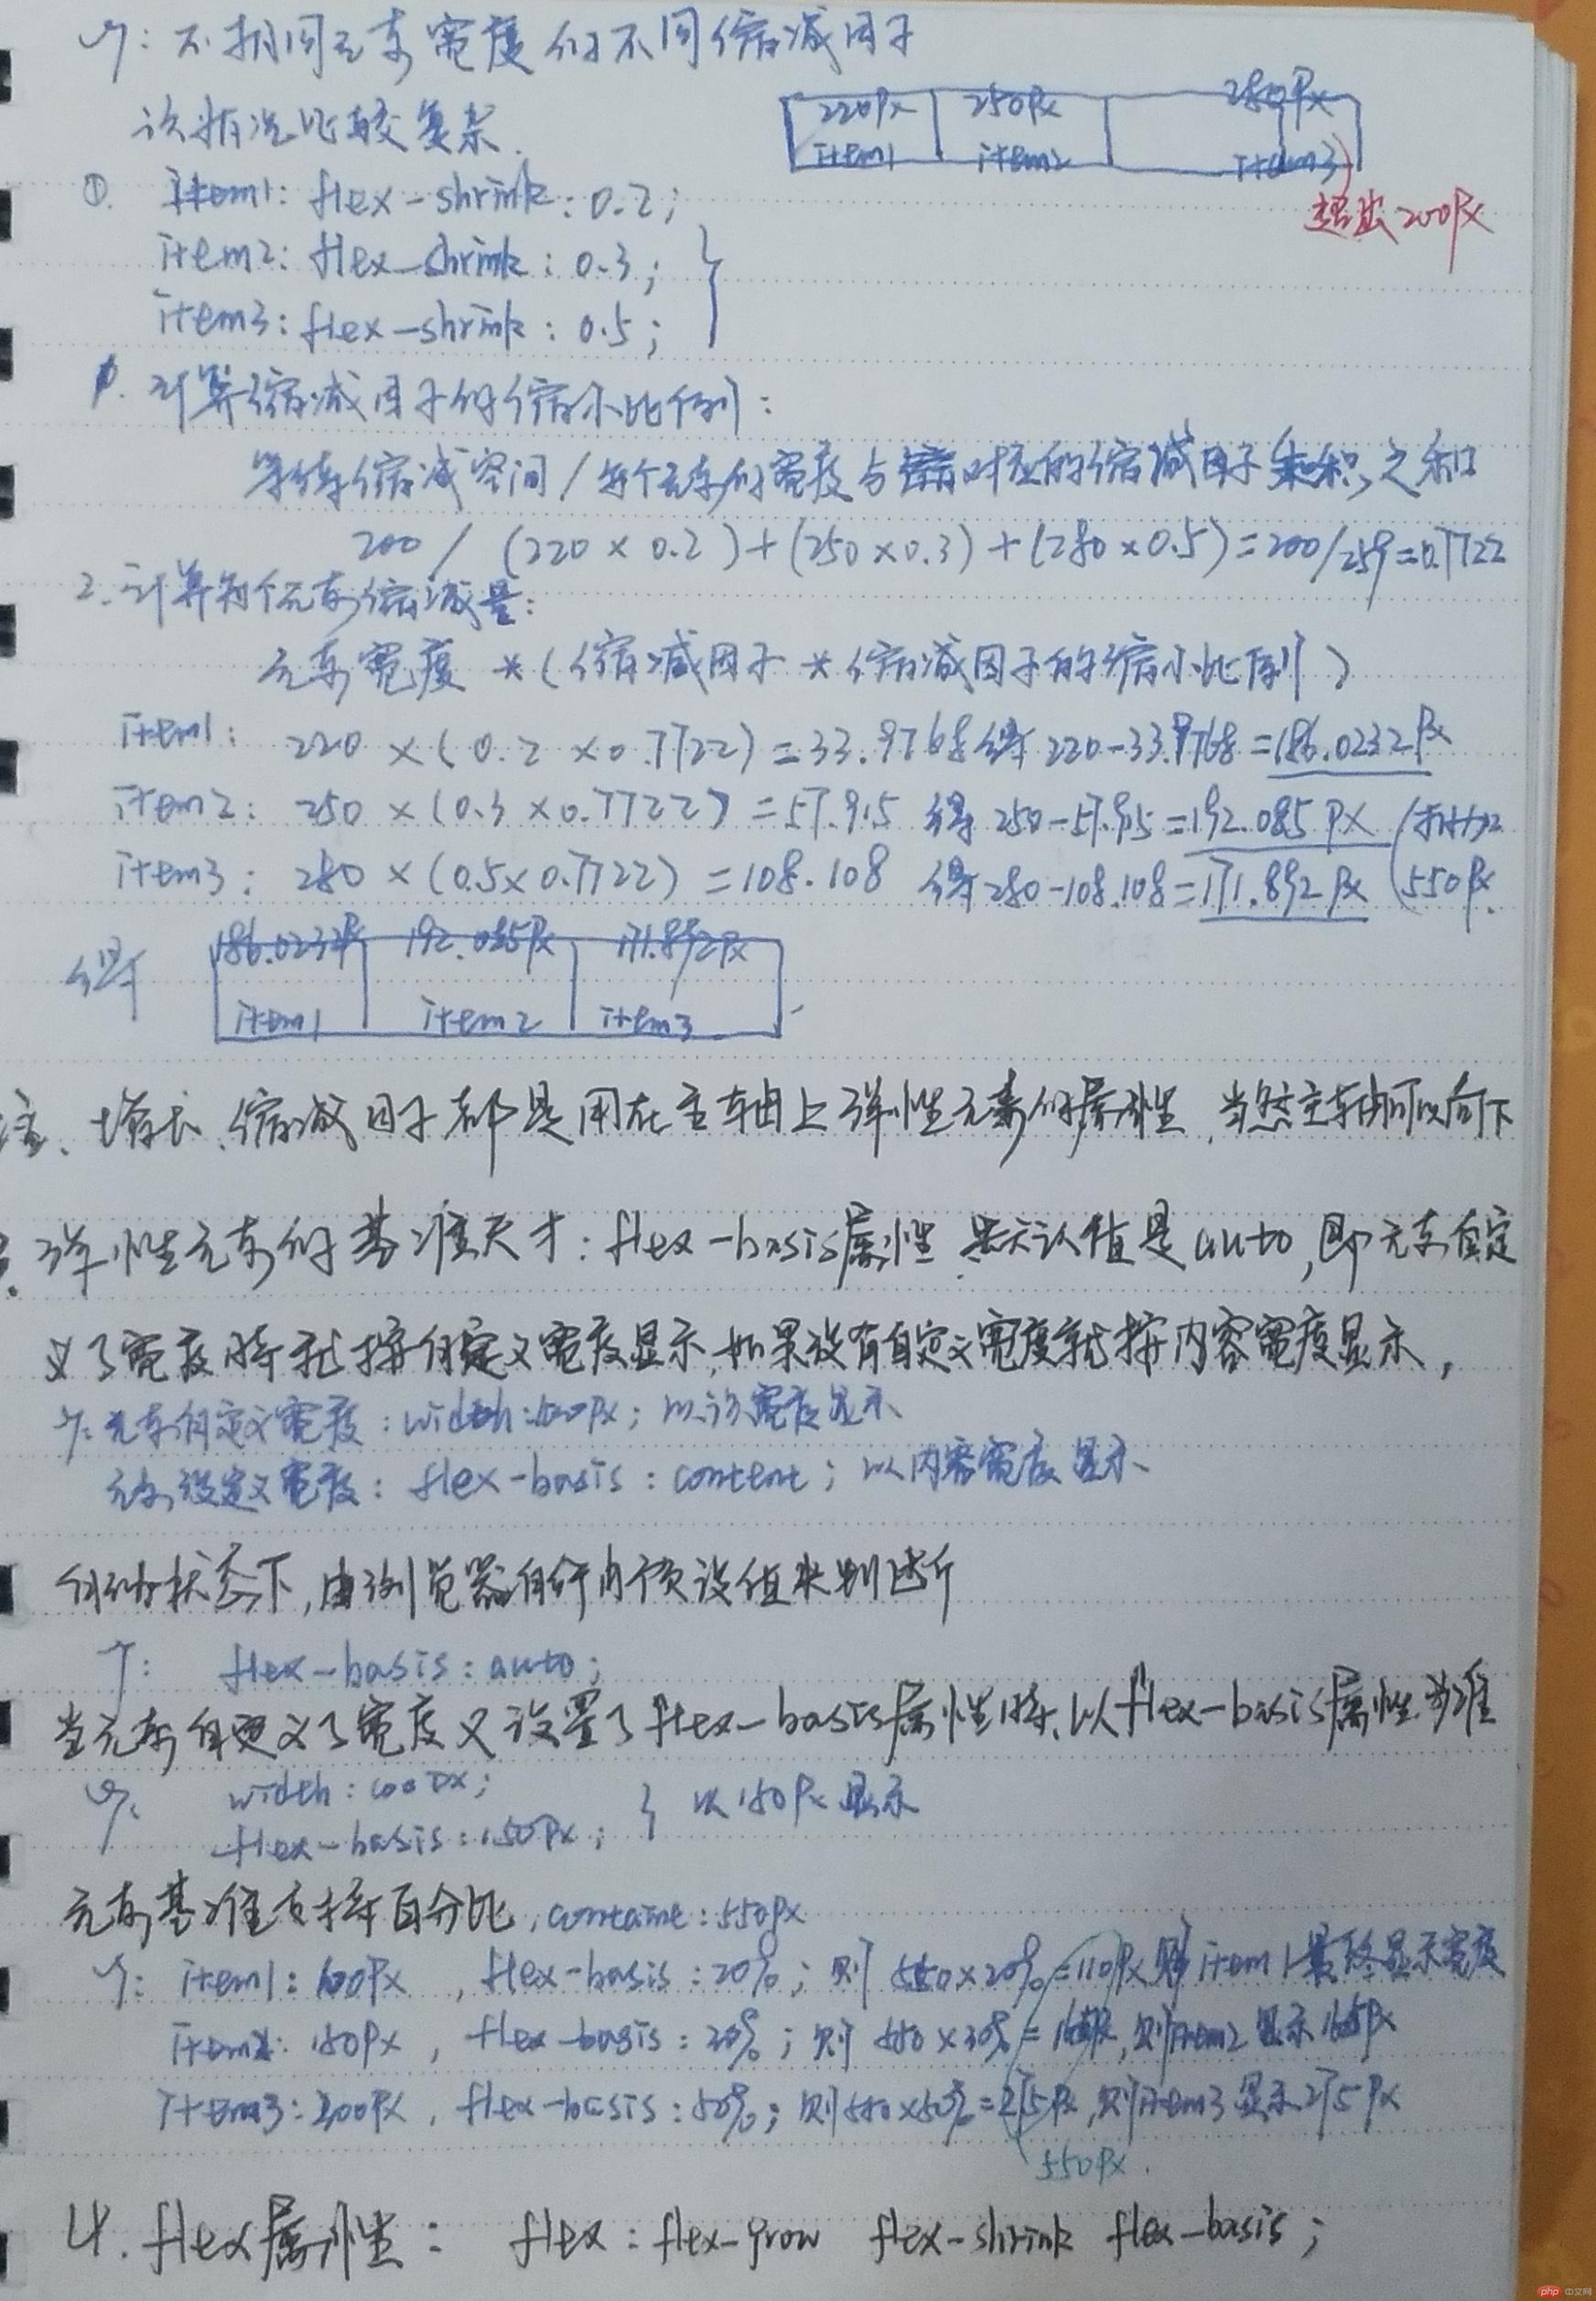 例: 不相同元素宽度的不同缩减因子
该状况比较复杂.
220px 250px 280px
item1 item2 item3
超出200px
①. item1: flex-shrink: 0.2;
item2: flex-shrink: 0.3;
item3: flex-shrink: 0.5;
1. 计算缩减因子的缩小比例:
等待缩减空间/每个元素的宽度与对应的缩减因子乘积之和
200 / (220 × 0.2) + (250 × 0.3) + (280 × 0.5) = 200/259 = 0.7722
2. 计算每个元素缩减量:
元素宽度 * (缩减因子 * 缩减因子的缩小比例)
item1: 220 × (0.2 × 0.7722) = 33.9768 得 220-33.9768 = 186.0232px
item2: 250 × (0.3 × 0.7722) = 57.915 得 250-57.915 = 192.085px
item3: 280 × (0.5 × 0.7722) = 108.108 得 280-108.108 = 171.892px
550px.
得 186.0232px 192.085px 171.892px
item1 item2 item3
注、增长、缩减因子都是用在主轴上弹性元素的属性,当然主轴可以向下
弹性元素的基准尺寸: flex-basis属性,默认值是auto,即元素自定
义了宽度时就按自定义宽度显示,如果没有自定义宽度就按内容宽度显示,
例: 元素自定义宽度: width: 100px; 以该宽度显示
元素没定义宽度: flex-basis: content; 以内容宽度显示
自动状态下,由浏览器自行内预设值来判断
例: flex-basis: auto;
当元素自定义了宽度又设置了flex-basis属性时,以flex-basis属性为准
例. width: 100px;
flex-basis: 150px; } 以150px显示
元素基准支持百分比, containe: 550px
例: item1: 100px , flex-basis: 20%; 则 550×20%=110px 则item1最终显示宽度
item2: 150px , flex-basis: 30%; 则 550×30%=165px,则item2显示165px
item3: 200px , flex-basis: 50%; 则550×50%=275px,则item3显示275px
550px.
4. flex属性: flex: flex-grow flex-shrink flex-basis;
php 中文网